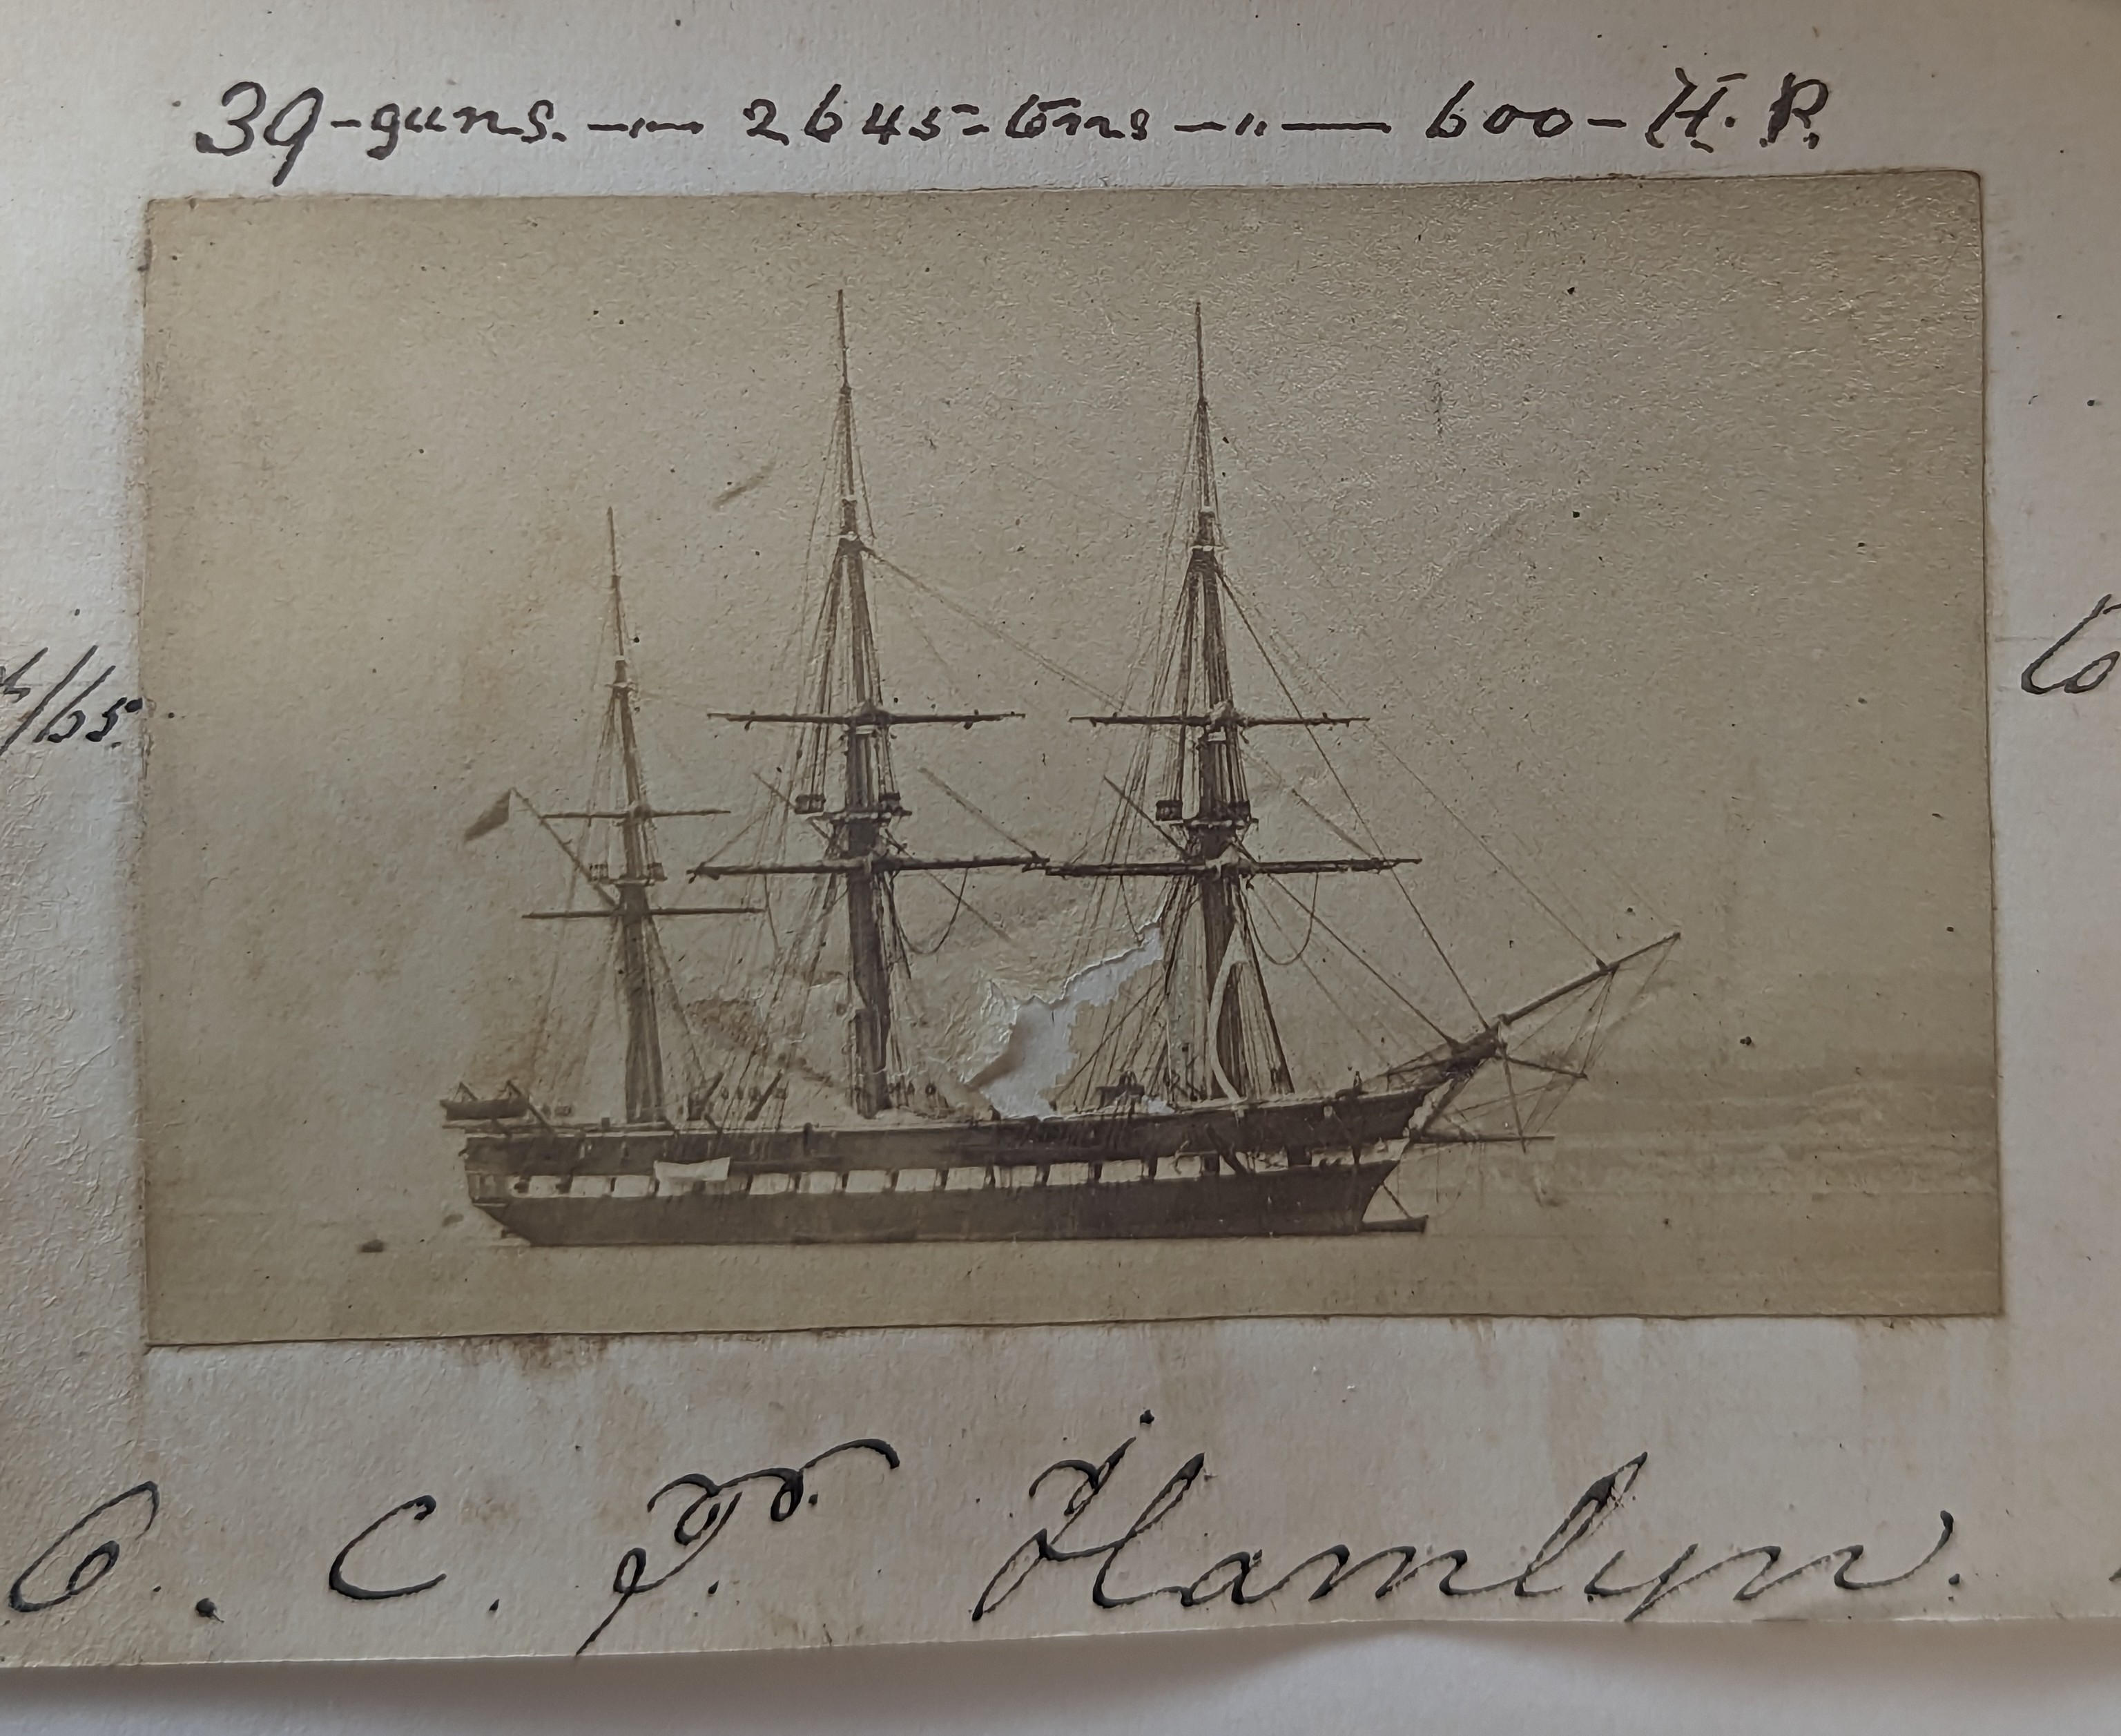 39-guns. —"— 2645-tons —"— 600-H.P.
/65.
C. C. F. Hamlyn.